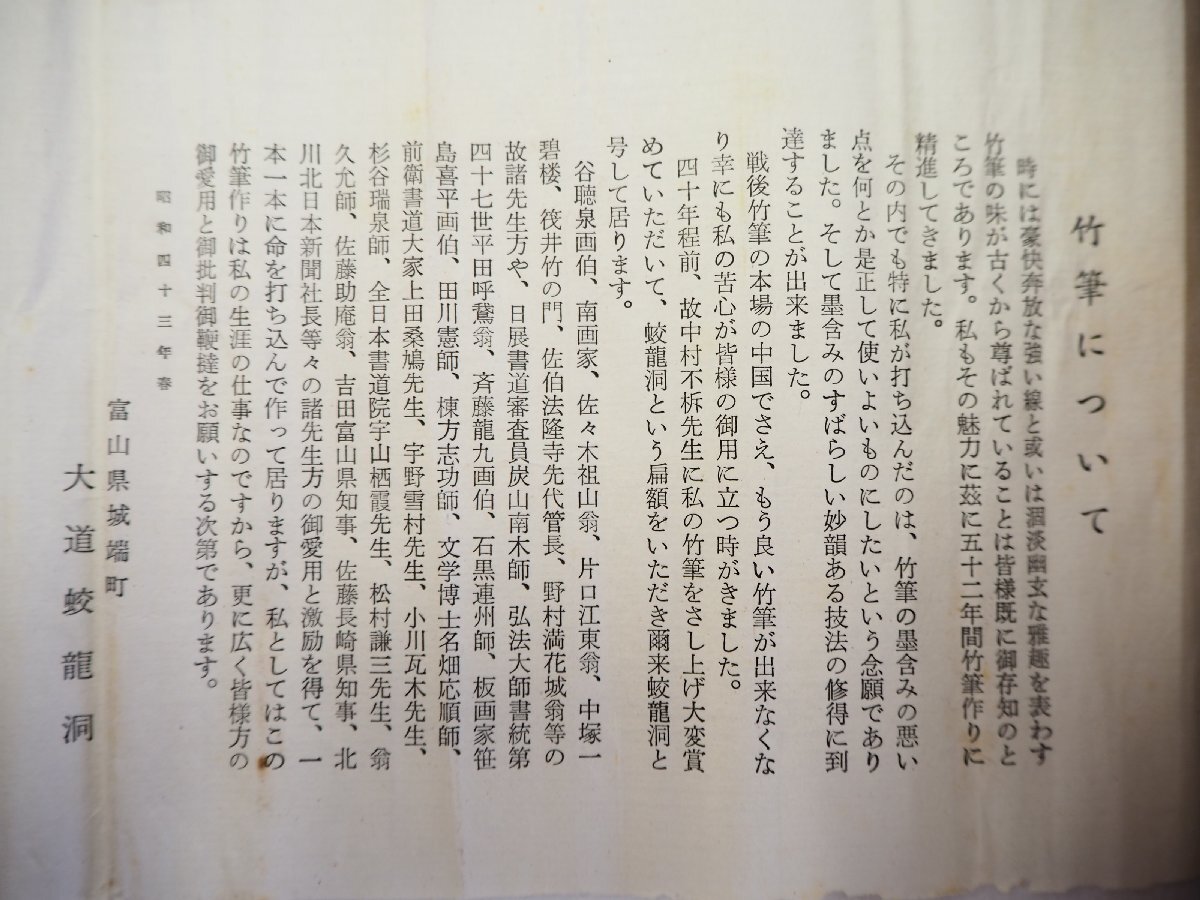 竹筆について
時には豪快奔放な強い線と或いは涸淡幽玄な雅趣を表わす
竹筆の味が古くから尊ばれていることは皆様既に御存知のと
ころであります。私もその魅力に茲に五十二年間竹筆作りに
精進してきました。
その内でも特に私が打ち込んだのは、竹筆の墨含みの悪い
点を何とか是正して使いよいものにしたいという念願であり
ました。そして墨含みのすばらしい妙韻ある技法の修得に到
達することが出来ました。
戦後竹筆の本場の中国でさえ、もう良い竹筆が出来なくな
り幸にも私の苦心が皆様の御用に立つ時がきました。
四十年程前、故中村不折先生に私の竹筆をさし上げ大変賞
めていただいて、蛟龍洞という扁額をいただき爾来蛟龍洞と
号して居ります。
谷聴泉画伯、南画家、佐々木祖山翁、片口江東翁、中塚一
碧楼、筏井竹の門、佐伯法隆寺先代管長、野村満花城翁等の
故諸先生方や、日展書道審査員炭山南木師、弘法大師書統第
四十七世平田呼鵞翁、斉藤龍九画伯、石黒連州師、板画家笹
島喜平画伯、田川憲師、棟方志功師、文学博士名畑応順師、
前衛書道大家上田桑鳩先生、宇野雪村先生、小川瓦木先生、
杉谷瑞泉師、全日本書道院宇山栖霞先生、松村謙三先生、翁
久允師、佐藤助庵翁、吉田富山県知事、佐藤長崎県知事、北
川北日本新聞社長等々の諸先生方の御愛用と激励を得て、一
本一本に命を打ち込んで作って居りますが、私としてはこの
竹筆作りは私の生涯の仕事なのですから、更に広く皆様方の
御愛用と御批判御鞭撻をお願いする次第であります。
昭和四十三年春
富山県城端町
大道蛟龍洞